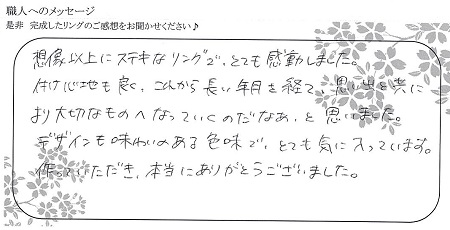 職人へのメッセージ
是非 完成したリングのご感想をお聞かせください♪
想像以上にステキなリングで、とても感動しました。
付けじ地も良く、これから長い年月を経て、思い出と共に
より大切なものへなっていくのだなあ、と思いました。
デザインも味わいのある色味で、とても気に入っています。
作っていただき、本当にありがとうございました。